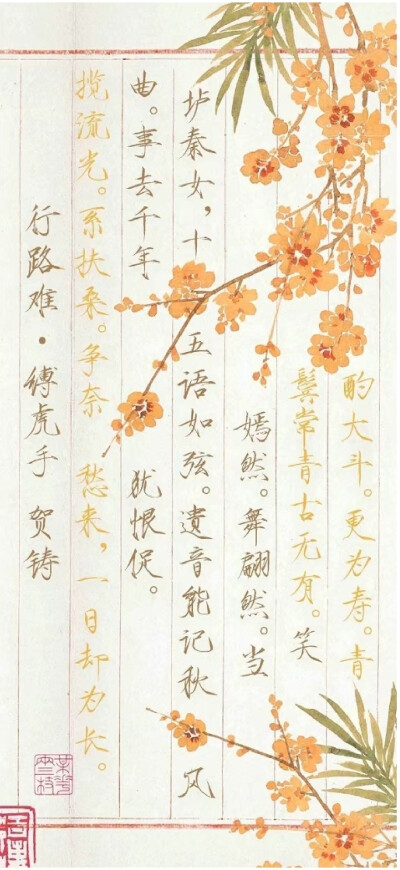 酌大斗。更为寿。青
鬓常青古无有。笑
嫣然。舞翩然。当
垆秦女，十五语如弦。遗音能记秋风
曲。事去千年犹恨促。
揽流光。系扶桑。争奈愁来，一日却为长。
行路难·缚虎手 贺铸